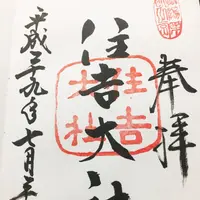 奉拝
住吉大社
住吉
大社
平成二十九年七月